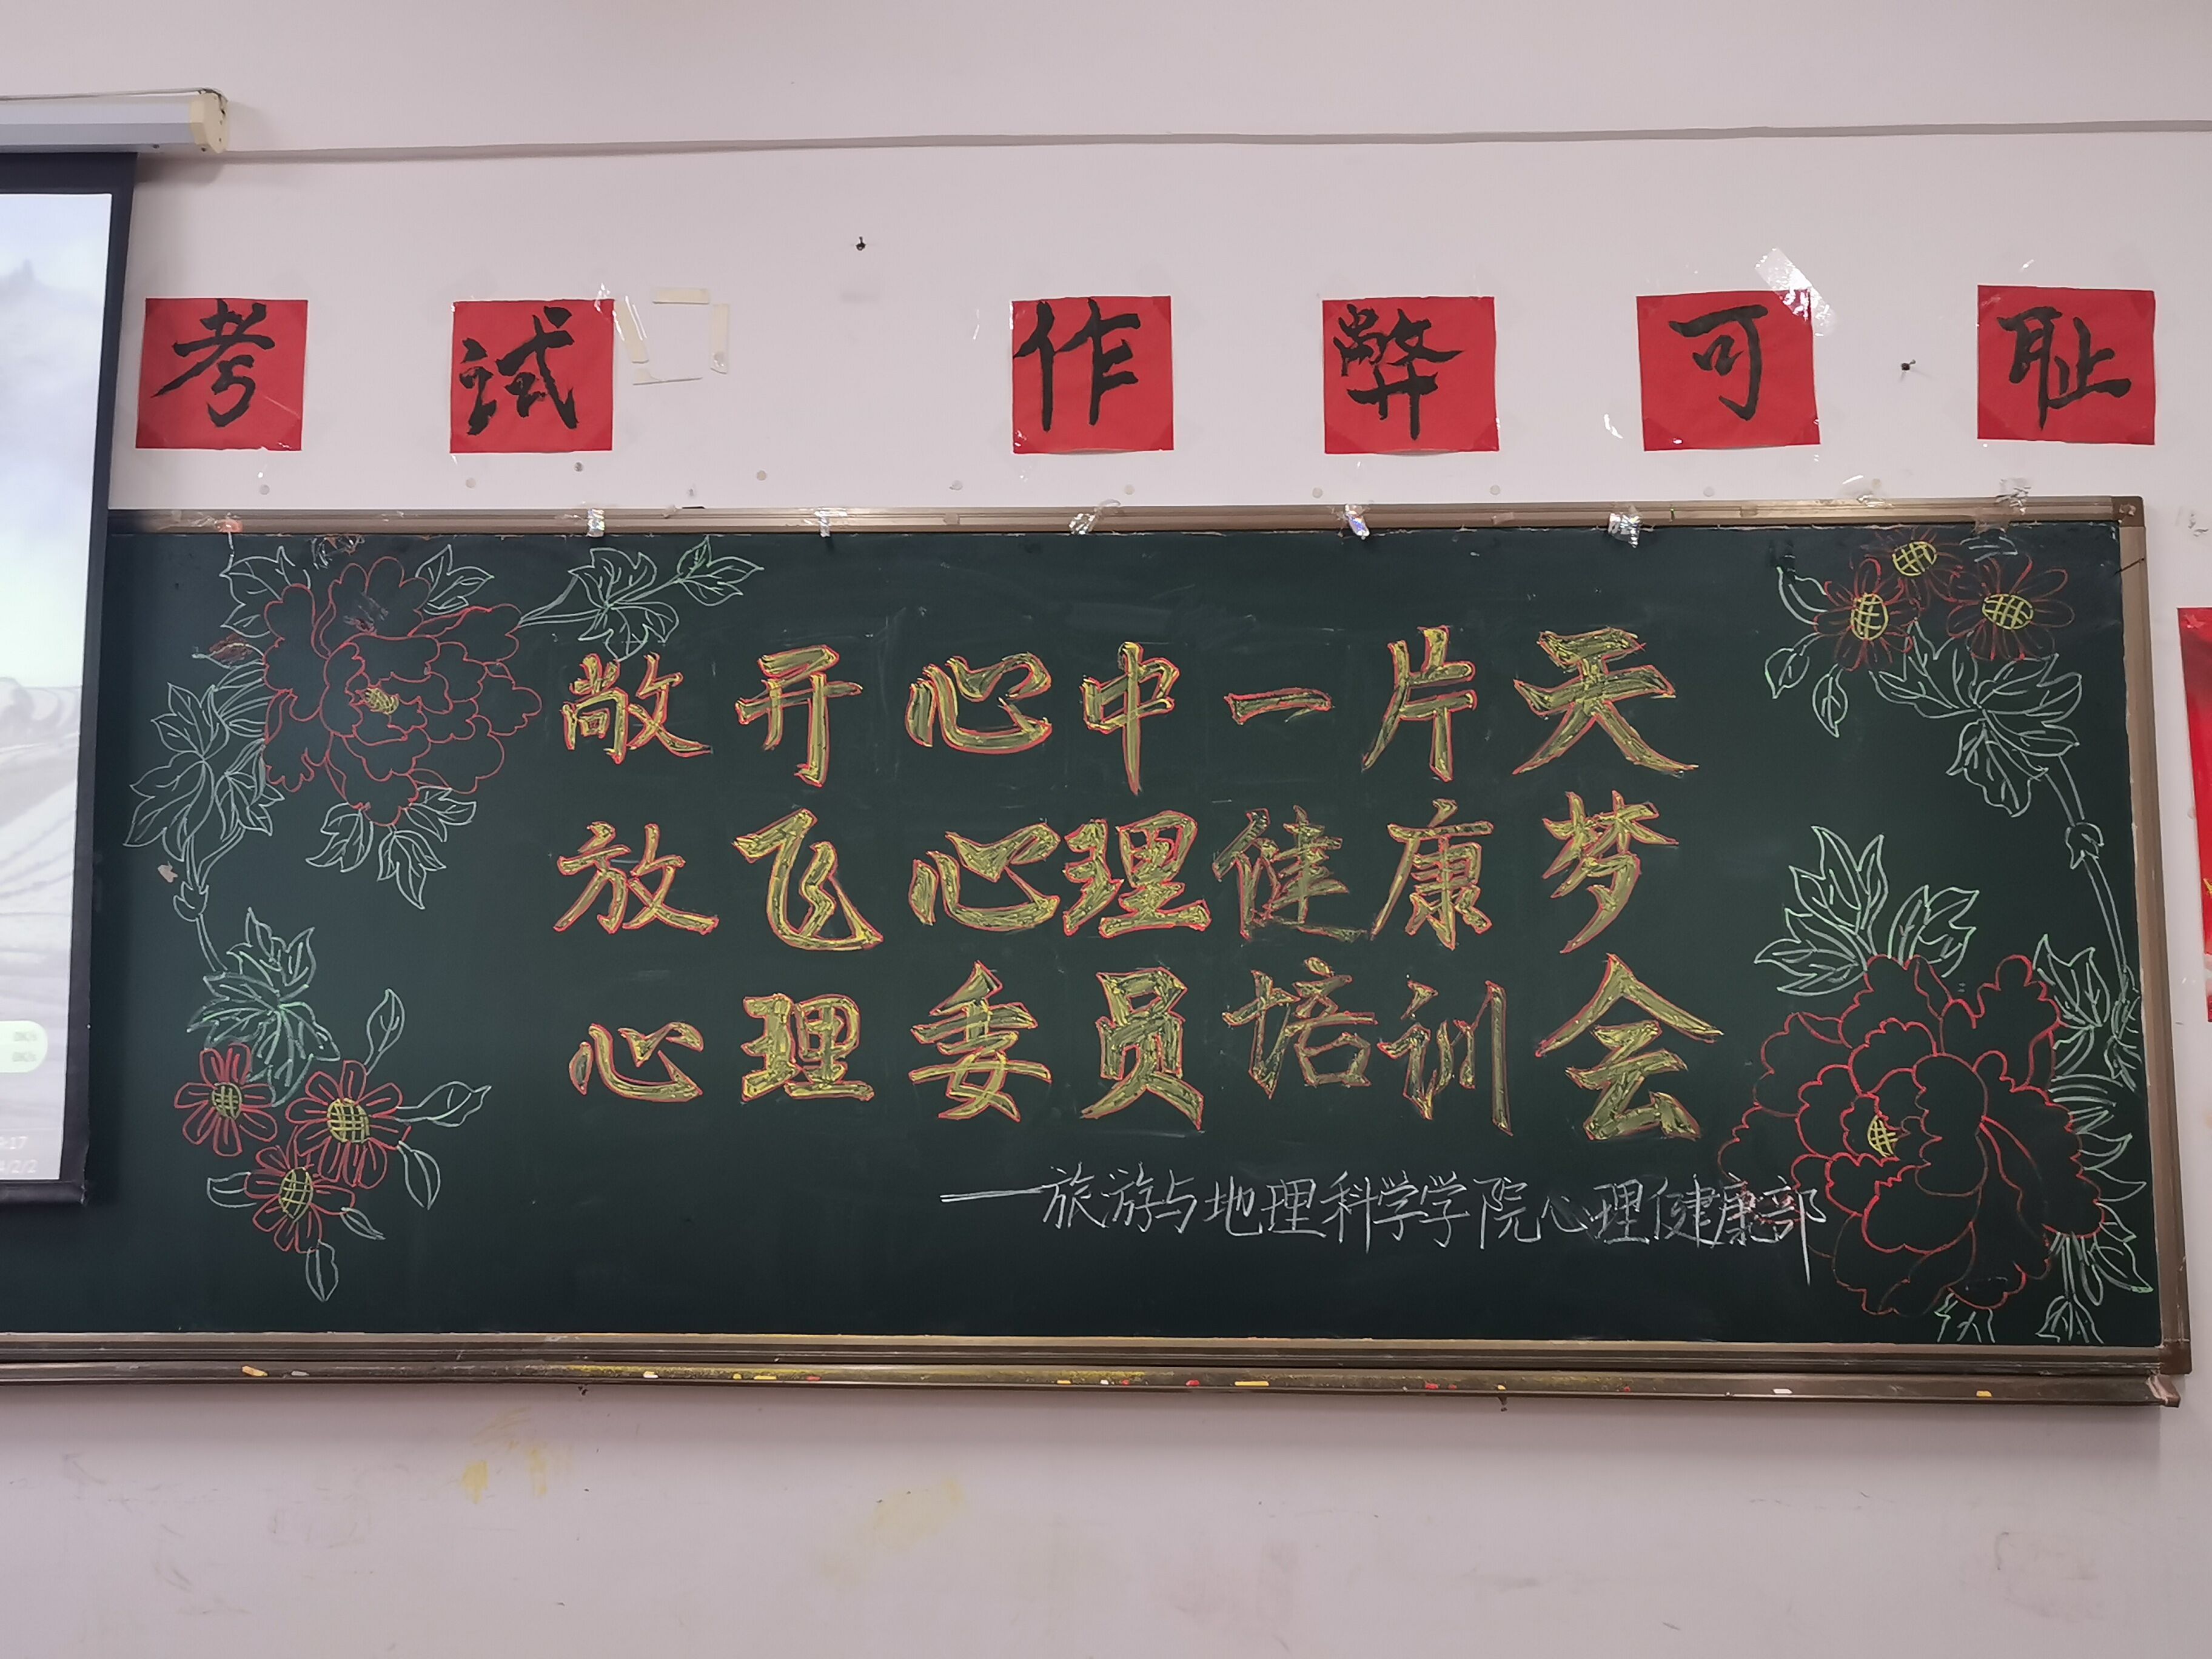 考试作弊可耻
敞开心中一片天
放飞心理健康梦
心理委员培训会
——旅游与地理科学学院心理健康部